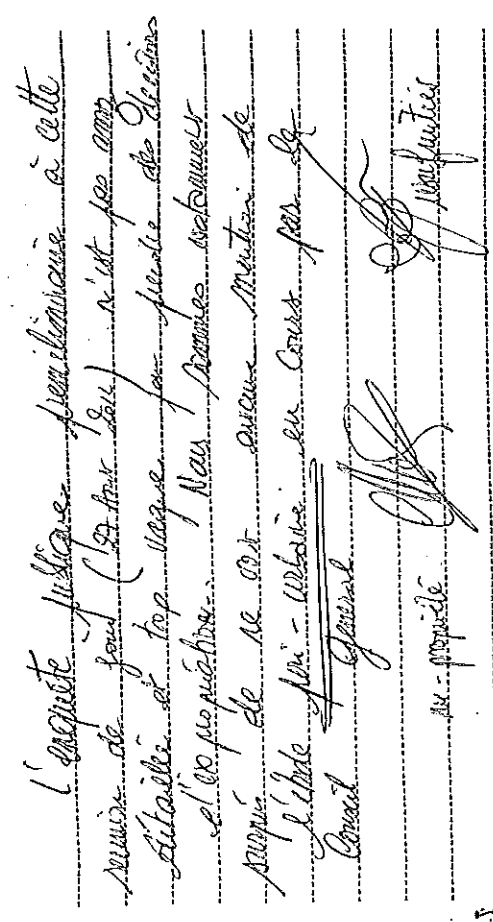 l'enquête publique préliminaire à cette
remise de jour ( ) n'est pas assez
détaillée et trop vague pour prendre des décisions
d'expropriation. Nous sommes étonnés
surpris de ne voir aucune mention de
l'étude péri-urbaine en cours par le
Conseil Général
nu-propriété usufruitier